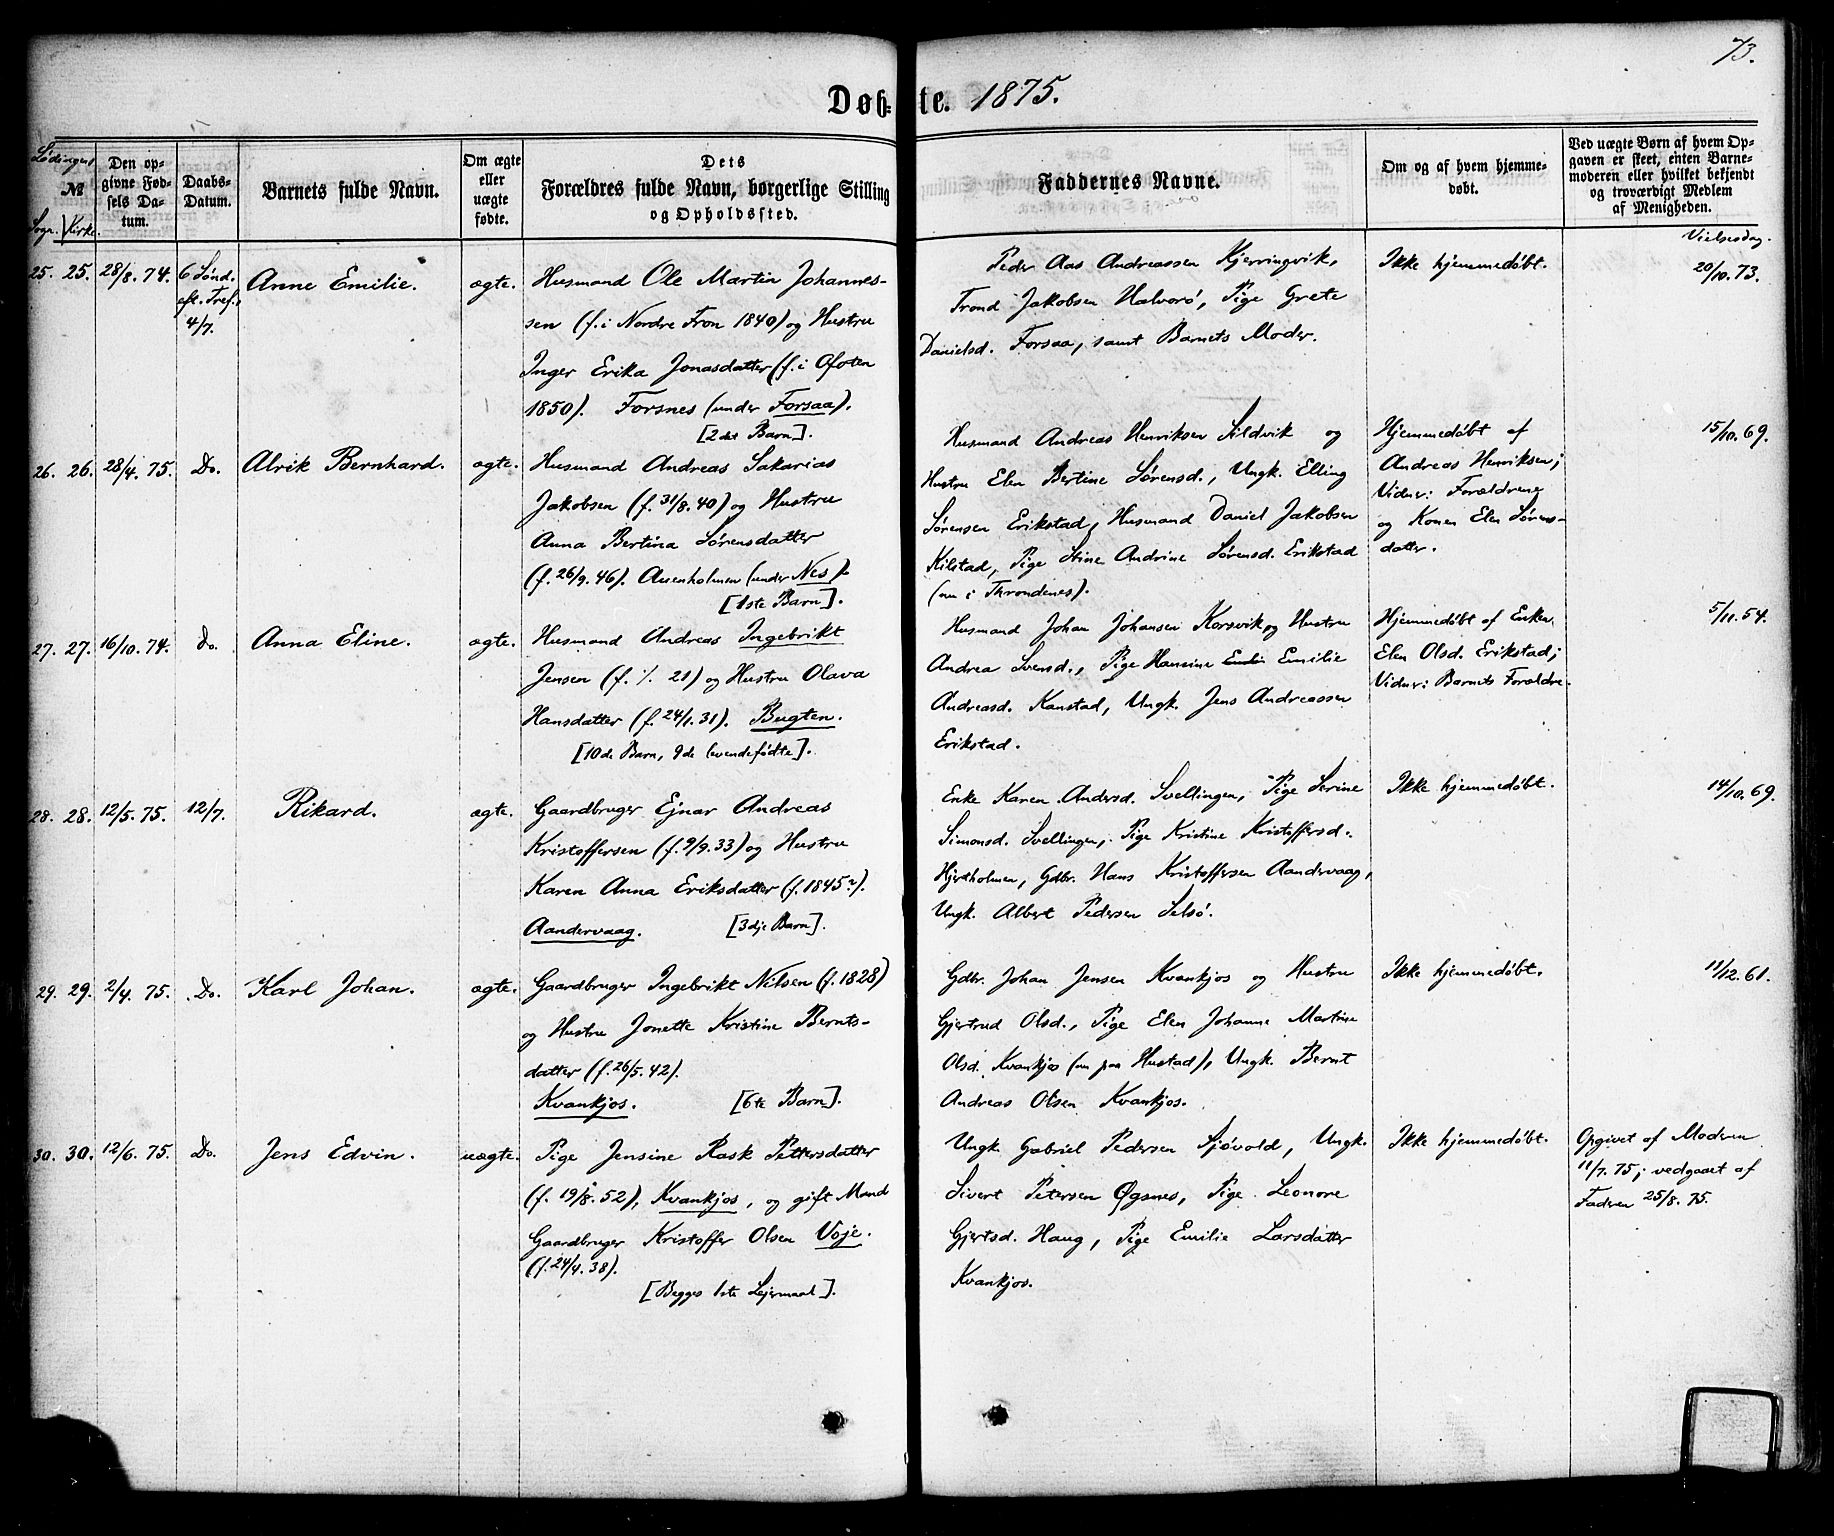 73.
Døb-te. 1875.
Lødingens
№
Sogn. Kirke.
Den op-
givne Fød-
sels Da-
tum.
Daabs-
Datum.
Barnets fulde Navn.
Om ægte
eller
uægte
fødte.
Dets
Forældres fulde Navn, borgerlige Stilling
og Opholdssted.
Faddernes Navne.
Om og af hvem hjemme-
døbt.
Ved uægte Børn af hvem Op-
gaven er skeet, enten Barne-
moderen eller hvilket bekjendt
og troværdigt Medlem
af Menigheden.
Vielsesdag.
25. 25. 28/8. 74. 6 Sønd.
eft. Tref.
4/7.
Anne Emilie.
ægte.
Husmand Ole Martin Johannes-
sen (f. i Nordre Fron 1840) og Hustru
Inger Erika Jonasdatter (f. i Ofoten
1850). Forsnes (under Forsaa).
[2det Barn].
Peder Aas Andreassen Kjerringvik,
Trond Jakobsen Halvorö, Pige Grete
Danielsd. Forsaa, samt Barnets Moder.
Ikke hjemmedøbt.
20/10. 73.
26. 26. 28/4. 75. Do.
Alrik Bernhard.
ægte.
Husmand Andreas Sakarias
Jakobsen (f. 31/8. 40) og Hustru
Anna Bertina Sörensdatter
(f. 26/9. 46). Auenholmen (under Nes).
[1ste Barn].
Husmand Andreas Henriksen Sildvik og
Hustru Elen Bertine Sörensd., Ungk. Elling
Sörensen Erikstad, Husmand Daniel Jakobsen
Kilstad, Pige Stine Andrine Sörensd. Erikstad
(nu i Throndenes).
Hjemmedøbt af
Andreas Henriksen;
Vidner: Forældrene
og Konen Elen Sörens-
datter.
15/10. 69.
27. 27. 16/10. 74. Do.
Anna Eline.
ægte.
Husmand Andreas Ingebrikt
Jensen (f. 1/. 21) og Hustru Olava
Hansdatter (f. 24/1. 31). Bugten.
[10de Barn, 9de levendefødte].
Husmand Johan Johansen Korsvik og Hustru
Andrea Svensd., Pige Hansine Emilie
Andreasd. Kanstad, Ungk. Jens Andreassen
Erikstad.
Hjemmedøbt af Enken
Elen Olsd. Erikstad;
Vidner: Barnets Forældre.
5/11. 54.
28. 28. 12/5. 75. 12/7.
Rikard.
ægte.
Gaardbruger Ejnar Andreas
Kristoffersen (f. 9/9. 33) og Hustru
Karen Anna Eriksdatter (f. 1845?).
Aandervaag. [3dje Barn].
Enke Karen Andersd. Svellingen, Pige Serine
Simonsd. Svellingen, Pige Kristine Kristoffersd.
Hjertholmen, Gdbr. Hans Kristoffersen Aandervaag,
Ungk. Albert Pedersen Selsö.
Ikke hjemmedøbt.
14/10. 69.
29. 29. 2/4. 75. Do.
Karl Johan.
ægte.
Gaardbruger Ingebrikt Nilsen (f. 1828)
og Hustru Jonette Kristine Bernts-
datter (f. 26/5. 42).
Kvankjos. [6te Barn].
Gdbr. Johan Jensen Kvankjos og Hustru
Gjertrud Olsd., Pige Elen Johanne Martine
Olsd. Kvankjos (nu paa Hustad), Ungk. Bernt
Andreas Olsen Kvankjos.
Ikke hjemmedøbt.
11/12. 61.
30. 30. 12/6. 75. Do.
Jens Edvin.
uægte.
Pige Jensine Rask Pettersdatter
(f. 19/8. 52), Kvankjos, og gift Mand
Gaardbruger Kristoffer Olsen Voje.
(f. 24/4. 38).
[Begges 1ste Lejermaal].
Ungk. Gabriel Pedersen Sjövold, Ungk.
Sivert Petersen Øgsnes, Pige Leonore
Gjertsd. Haug, Pige Emilie Larsdatter
Kvankjos.
Ikke hjemmedøbt.
Opgivet af Moderen
11/7. 75; vedgaaet af
Faderen 25/8. 75.